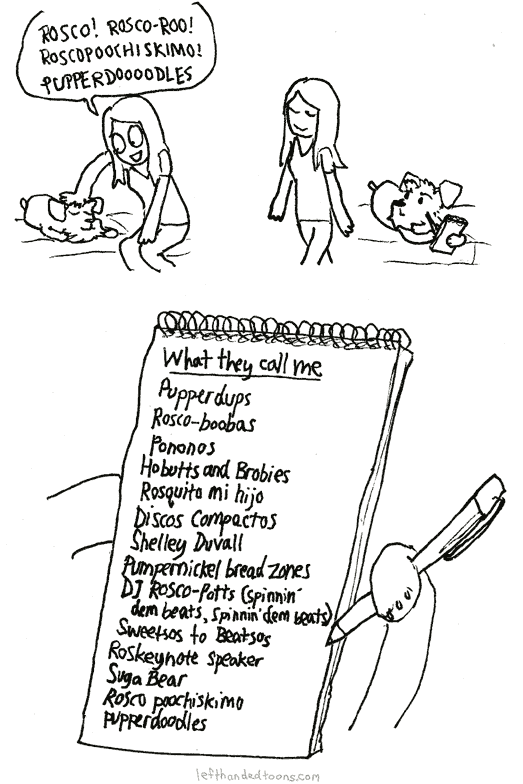 ROSCO! ROSCO-ROO!
ROSCOPOOCHISKIMO!
PUPPERDOOOODLES
What they call me
Pupperdups
Rosco-boobas
Pononos
Hobutts and Brobies
Rosquito mi hijo
Discos Compactos
Shelley Duvall
Pumpernickel bread zones
DJ Rosco-Potts (spinnin'
dem beats, spinnin' dem beats)
Sweetsos to Beatsos
Roskeynote speaker
Suga Bear
Rosco poochiskimo
pupperdoodles
lefthandedtoons.com